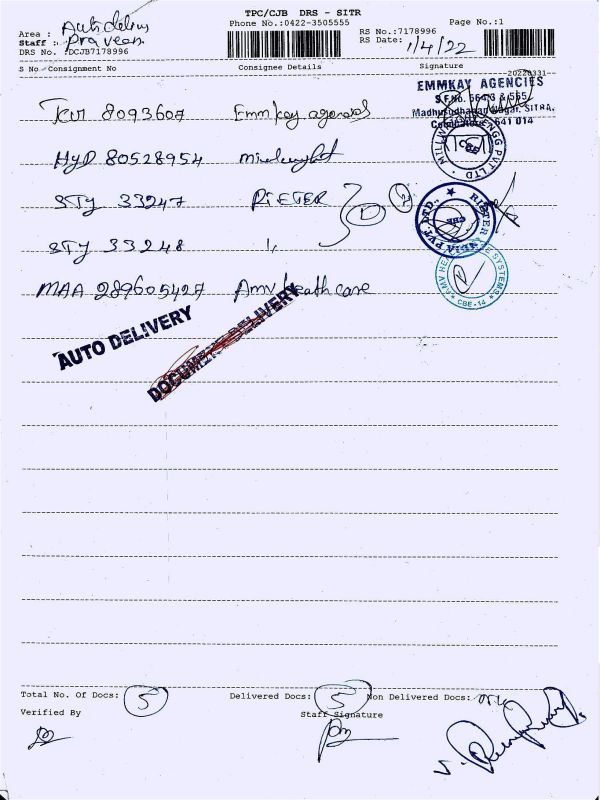 TPC/CJB DRS - SITR
Phone No.:0422-3505555 Page No.:1
Area : Auto delivery RS No.:7178996
Staff : Praveen RS Date: 1/4/22
DRS No. :DCJB7178996
20220331
S No Consignment No Consignee Details Signature
8093607 Emmkay agencies
EMMKAY AGENCIES
S.F.No. 564/3 & 565
Madhusudhanan Nagar, SITRA,
641 014
HYD 80528954
ENGG PVT LTD
STJ 33247 RIETER
STJ 33248 "
RIETER INDIA PVT. LTD.
MAA 289605427 Amv heath care
AMV HE SYSTEMS
CBE-14
AUTO DELIVERY
DOCUMENT DELIVERY
Total No. Of Docs: 5 Delivered Docs: 5 Non Delivered Docs:
Verified By Staff Signature